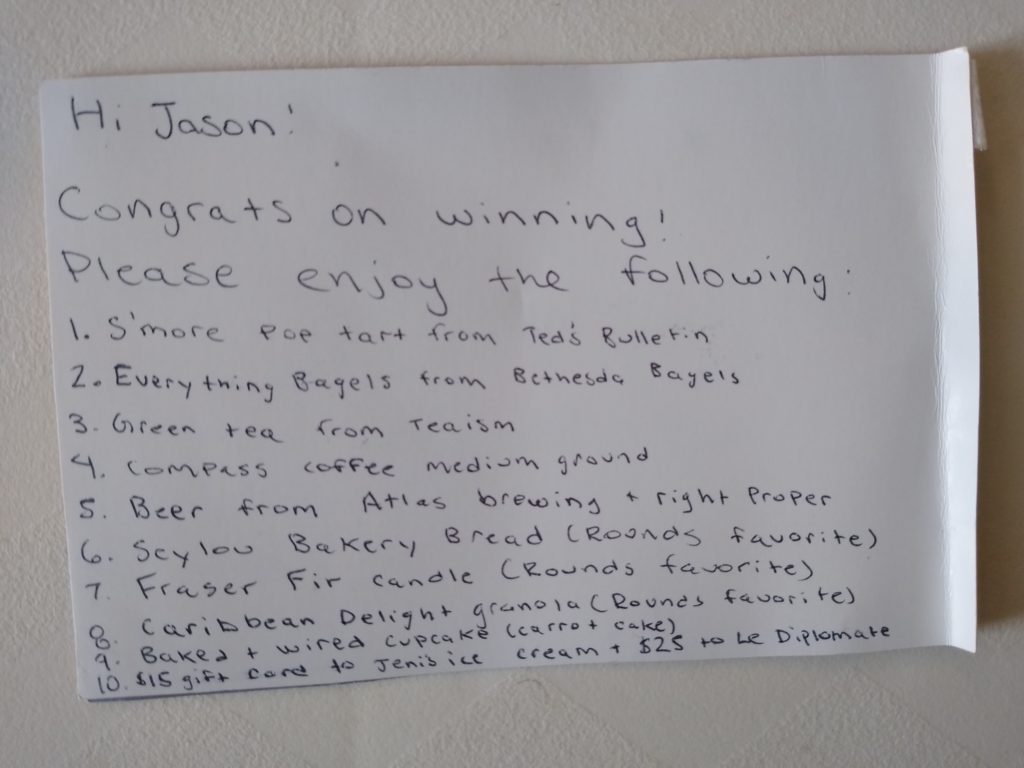 Hi Jason!
Congrats on winning!
Please enjoy the following:
1. S'more Pop tart from Ted's Bulletin
2. Everything Bagels from Bethesda Bagels
3. Green tea from Teaism
4. Compass coffee medium ground
5. Beer from Atlas brewing + right Proper
6. Seylou Bakery Bread (Rounds favorite)
7. Fraser Fir candle (Rounds favorite)
8. Caribbean Delight granola (Rounds favorite)
9. Baked + wired cupcake (carrot cake)
10. $15 gift card to Jeni's ice cream + $25 to Le Diplomate